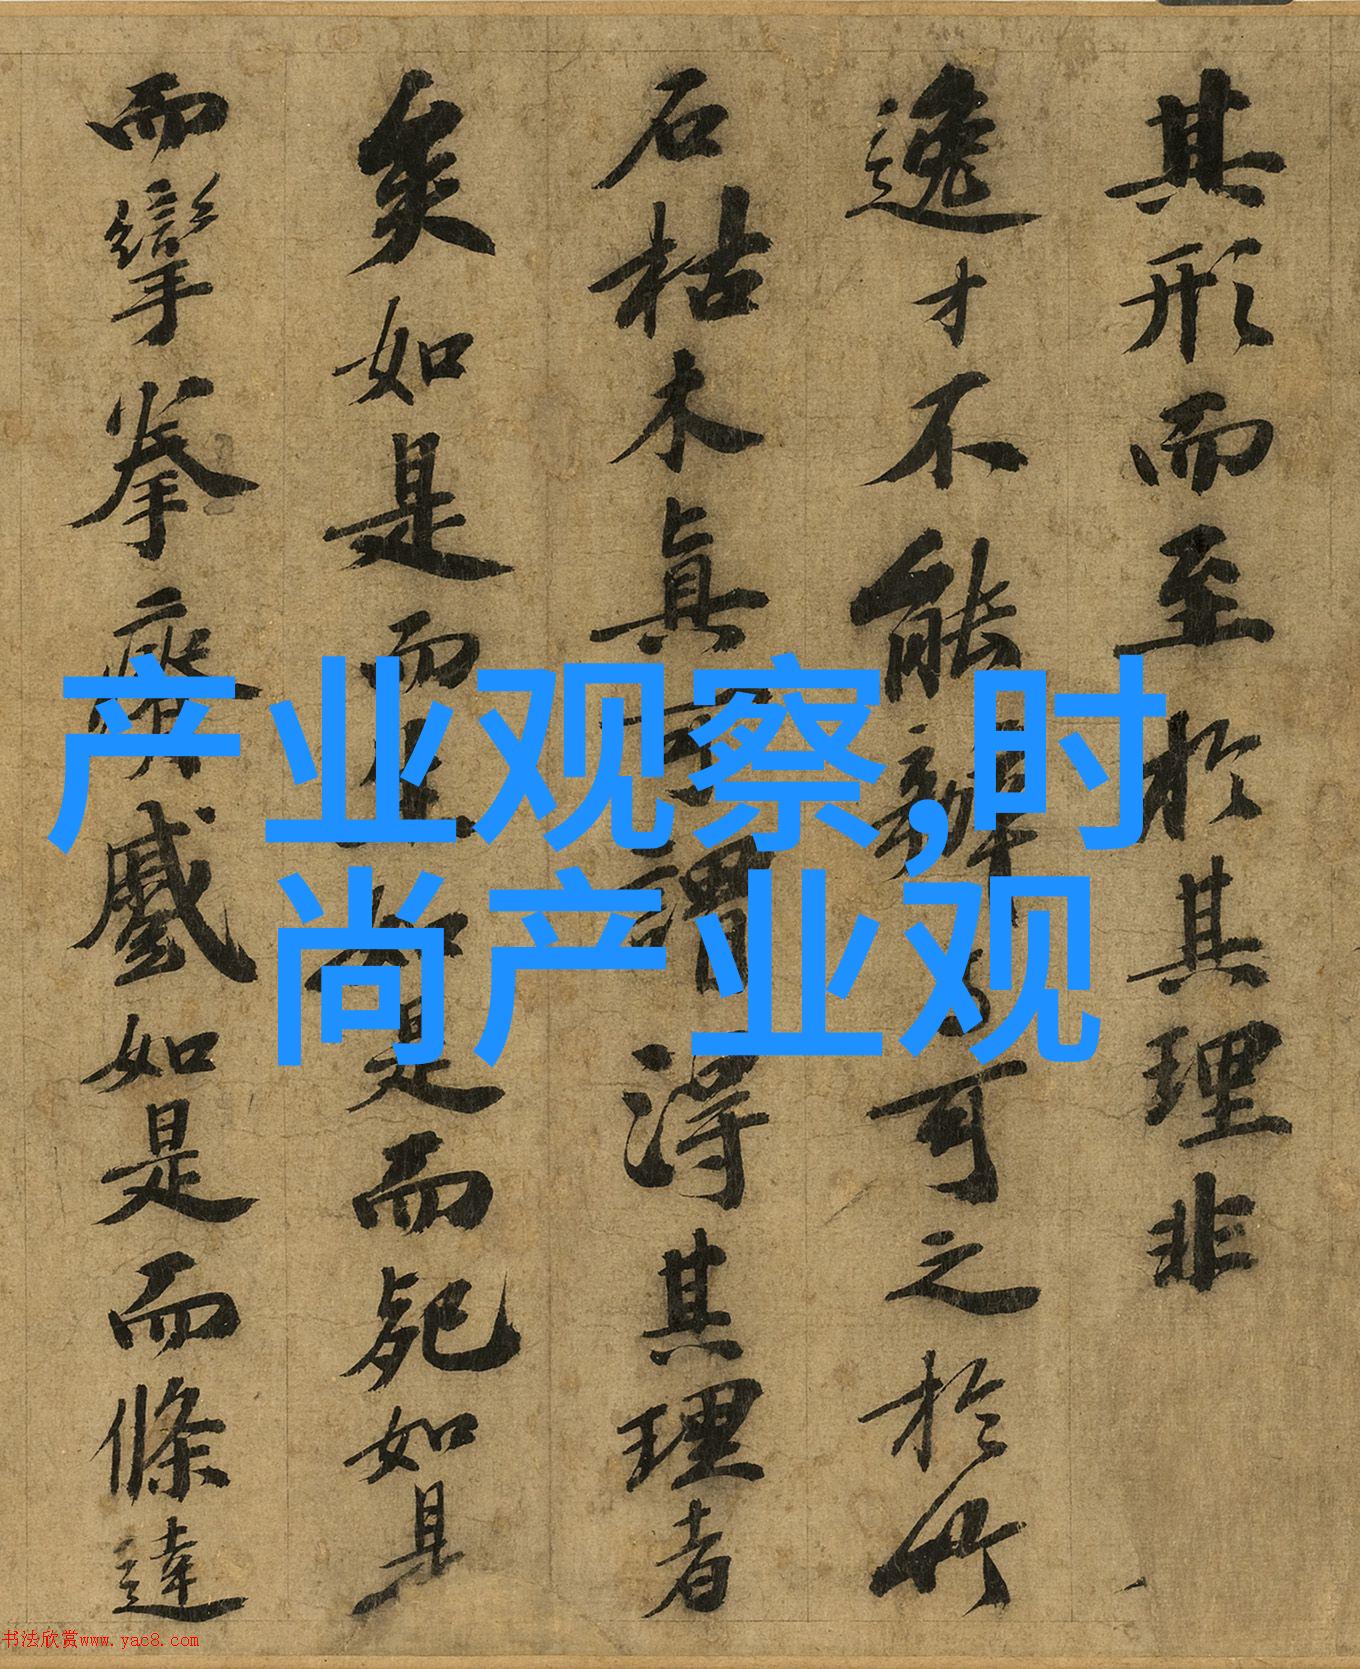 其形而至於其理非
逸才不能辦與可之於竹
石枯木真可謂得其理者
矣如是而生如是而死如是
而攣拳瘠蹙如是而條達
产业观察,时
尚产业观
书法欣赏www.yac8.com